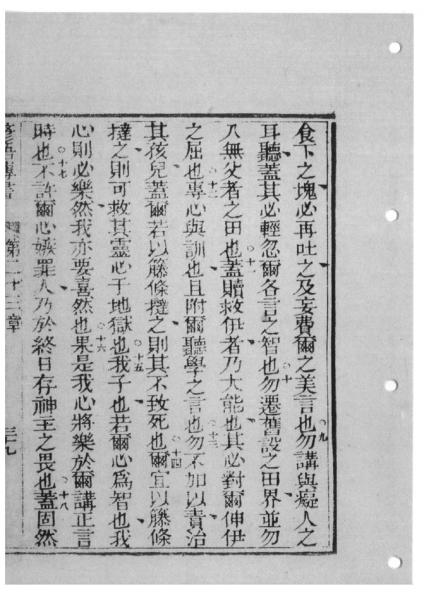 食下之塊必再吐之及妄費爾之美言也○九勿講與癡人之
耳聽蓋其必輕忽爾各言之智也○十勿遷舊設之田界並勿
入無父者之田也○十一蓋贖救伊者乃大能也其必對爾伸伊
之屈也○十二專心與訓也且附爾聽學之言也○十三勿不加以責治
其孩兒蓋爾若以籐條撻之則其不致死也○十四爾宜以籐條
撻之則可救其靈心于地獄也○十五我子也若爾心為智也我
心則必樂然我亦要喜然也○十六果是我心將樂於爾講正言
時也○十七不許爾心嫉罪人乃於終日存神主之畏也○十八蓋固然
諺語專書 第二十三章 三九